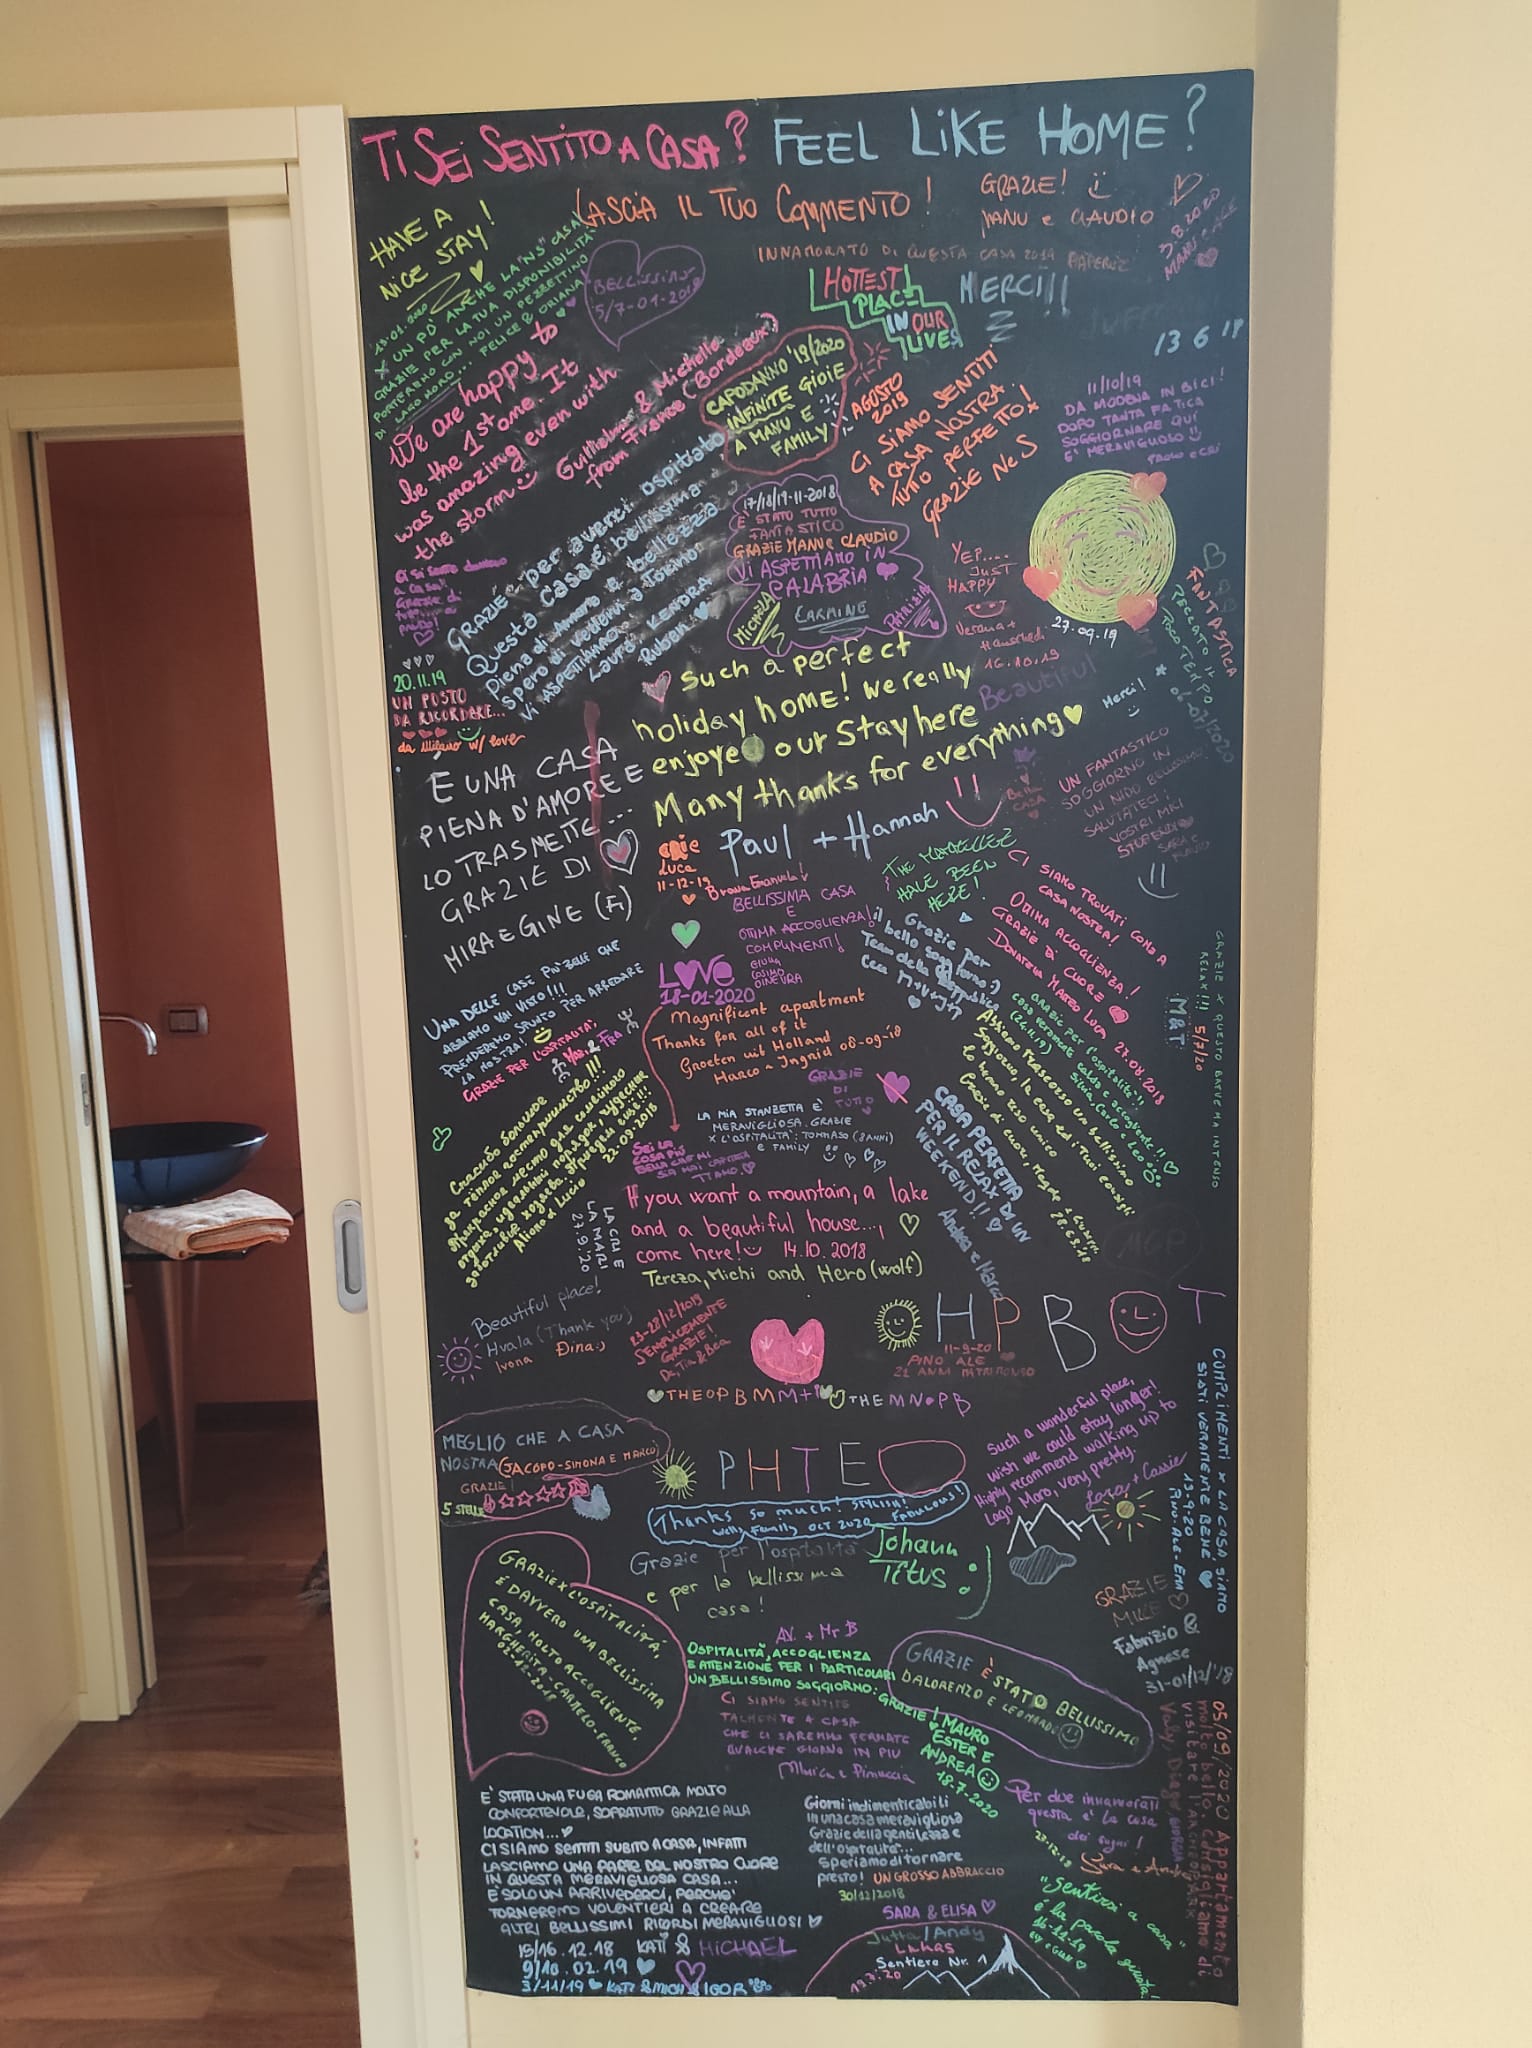 TI SEI SENTITO A CASA? FEEL LIKE HOME?
LASCIA IL TUO COMMENTO!
GRAZIE!
MANU e CLAUDIO
3.8.2020
HAVE A
NICE STAY!
INNAMORATO DI QUESTA CASA 2019
13.01.2020
X UN PO' ANCHE LA "NS" CASA
GRAZIE PER LA TUA DISPONIBILITÀ
PORTEREMO CON NOI UN PEZZETTINO
DI LAGO MORO... FELICE & ORIANA
BELLISSIMO
5/7-01-2018
HOTTEST
PLACE
IN OUR
LIVES
MERCI!!!
13 6 18
We are happy to
be the 1st one. It
was amazing even with
the storm
Guillaume & Michelle
from France (Bordeaux)
CAPODANNO '19/2020
INFINITE GIOIE
A MANU E
FAMILY
AGOSTO
2019
CI SIAMO SENTITI
A CASA NOSTRA.
TUTTO PERFETTO!
GRAZIE N e S
11/10/19
DA MODENA IN BICI!
DOPO TANTA FATICA
SOGGIORNARE QUI
E' MERAVIGLUOSO
PAOLO e CRI
GRAZIE per averci ospitato
Questa casa è bellissima
Piena di amore e bellezza
Spero di vedervi a Torino
Vi ASPETTIAMO
Laura KENDRA
Ruben
17/18/19-11-2018
E' STATO TUTTO
FANTASTICO
GRAZIE MANU e CLAUDIO
VI ASPETTIAMO IN
CALABRIA
MICHELA
CARMINE
PATRIZIA
YEP....
JUST
HAPPY
Verena +
16.10.19
27.09.19
FANTASTICA
PECCATO IL
POCO TEMPO
07/2020
a casa!!
Grazie di
20.11.19
UN POSTO
DA RICORDARE...
da Milano w/ love
Such a perfect
holiday home! We really
enjoyed our Stay here
Many thanks for everything
Paul + Hannah
Beautiful
Merci!
Bella
CASA
UN FANTASTICO
SOGGIORNO IN
UN NIDO BELLISSIMO
SALUTATECI I
VOSTRI MICI
STUPENDI
SARA E
È UNA CASA
PIENA D'AMORE E
LO TRASMETTE...
GRAZIE DI
MIRA E GINE (FI)
Luca
11-12-19
Brava Emanuela!
BELLISSIMA CASA
E
OTTIMA ACCOGLIENZA!
COMPLIMENTI!
GIULIA
COSIMO
GINEVRA
HAVE BEEN
HERE!
CI SIAMO TROVATI COME A
CASA NOSTRA!
OTTIMA ACCOGLIENZA!
GRAZIE DI CUORE
DONATELLA MARZO LUCA 27.08.2018
Grazie per
il bello soggiorno :)
LOVE
18-01-2020
UNA DELLE CASE PIÙ BELLE CHE
ABBIAMO MAI VISTO!!!
PRENDEREMO SPUNTO PER ARREDARE
LA NOSTRA!
GRAZIE PER L'OSPITALITA',
Magnificent apartment
Thanks for all of it
Groeten uit Holland
Marco - Ingrid 08-09-18
GRAZIE
DI
TUTTO
GRAZIE X QUESTO BREVE MA INTENSO
RELAX!!!
5/7/20
M&T
GRAZIE per l'ospitalità!!
casa veramente calda e accogliente!!
(24.11.19) Silvia, Carlo e Leo
Abbiamo trascorso un bellissimo
Soggiorno, la casa ed i tuoi consigli
lo hanno reso unico
Grazie di cuore, Magda e Giuseppe
CASA PERFETTA
PER IL RELAX DI UN
WEEKEND!!
Andrea e Marco
LA MIA STANZETTA È
MERAVIGLIOSA. GRAZIE
X L'OSPITALITÀ: TOMMASO (8 ANNI)
E FAMILY
SEI LA
COSA PIÙ
BELLA CHE MI
SIA MAI CAPITATA
TI AMO.
Спасибо большое
за тёплое гостеприимство!!!
Прекрасное место для семейного
отдыха, идеальный порядок, чудесные
заботливые хозяева. Приедем ещё!!!
Aliona e Lucio
22-09-2018
LA CRI E
LA MARI
27.9.20
If you want a mountain, a lake
and a beautiful house...,
come here! 14.10.2018
Tereza, Michi and Hero (wolf)
MGP
Beautiful place!
Hvala (Thank you)
Ivona Đina:)
23-28/12/2019
SEMPLICEMENTE
GRAZIE!
Da, Tia & Bea
H P B O T
11-9-20
PINO ALE
22 ANNI MATRIMONIO
THE OP B M M +
THE M N O P B
MEGLIO CHE A CASA
NOSTRA (JACOPO-SIMONA E MARCO)
GRAZIE!
5 STELLE
P H T E
Such a wonderful place,
wish we could stay longer!
Highly recommend walking up to
Lago Moro, very pretty.
Lara + Cassie
COMPLIMENTI X LA CASA SIAMO
STATI VERAMENTE BENE
13-9-20
Thanks so much! STYLISH!
Wells Family OCT 2020 FABULOUS!
Grazie per l'ospitalità
e per la bellissima
casa!
Johann
Titus
GRAZIE
MILLE
Fabrizio &
Agnese
31-01/12/'18
GRAZIE X L'OSPITALITÁ,
É DAVVERO UNA BELLISSIMA
CASA, MOLTO ACCOGLIENTE.
MARGHERITA-CARMELO-FRANCO
02-12-2018
AV. + Mr B
OSPITALITÀ, ACCOGLIENZA
E ATTENZIONE PER I PARTICOLARI
UN BELLISSIMO SOGGIORNO: GRAZIE!
MAURO
ESTER E
ANDREA
18-7-2020
GRAZIE È STATO BELLISSIMO
DALORENZO E LEONARDO
CI SIAMO SENTITE
TALMENTE A CASA
CHE CI SAREMMO FERMATE
QUALCHE GIORNO IN PIÙ
Minica e Pinuccia
05/09/2020 Appartamento
molto bello. Consigliamo di
visitare l'ARCHEOPARK
E' STATA UNA FUGA ROMANTICA MOLTO
CONFORTEVOLE, SOPRATUTTO GRAZIE ALLA
LOCATION...
CI SIAMO SENTITI SUBITO A CASA, INFATTI
LASCIAMO UNA PARTE DEL NOSTRO CUORE
IN QUESTA MERAVIGLIOSA CASA...
E' SOLO UN ARRIVEDERCI, PERCHE'
TORNEREMO VOLENTIERI A CREARE
ALTRI BELLISSIMI RICORDI MERAVIGLIOSI
15/16.12.18 KATI & MICHAEL
9/10.02.19
3/11/19 KATI & MICH & IGOR
Giorni indimenticabili
in una casa meravigliosa
Grazie della gentilezza e
dell'ospitalità...
Speriamo di tornare
presto! UN GROSSO ABBRACCIO
30/12/2018
SARA & ELISA
Per due innamorati
questa è la casa
dei sogni!
27-12-18
Sara e Andrea
"Sentirsi a casa"
è la parola giusta!
16-11-19
Jutta/Andy
LUKAS
Sentiero Nr. 1
19.7.20